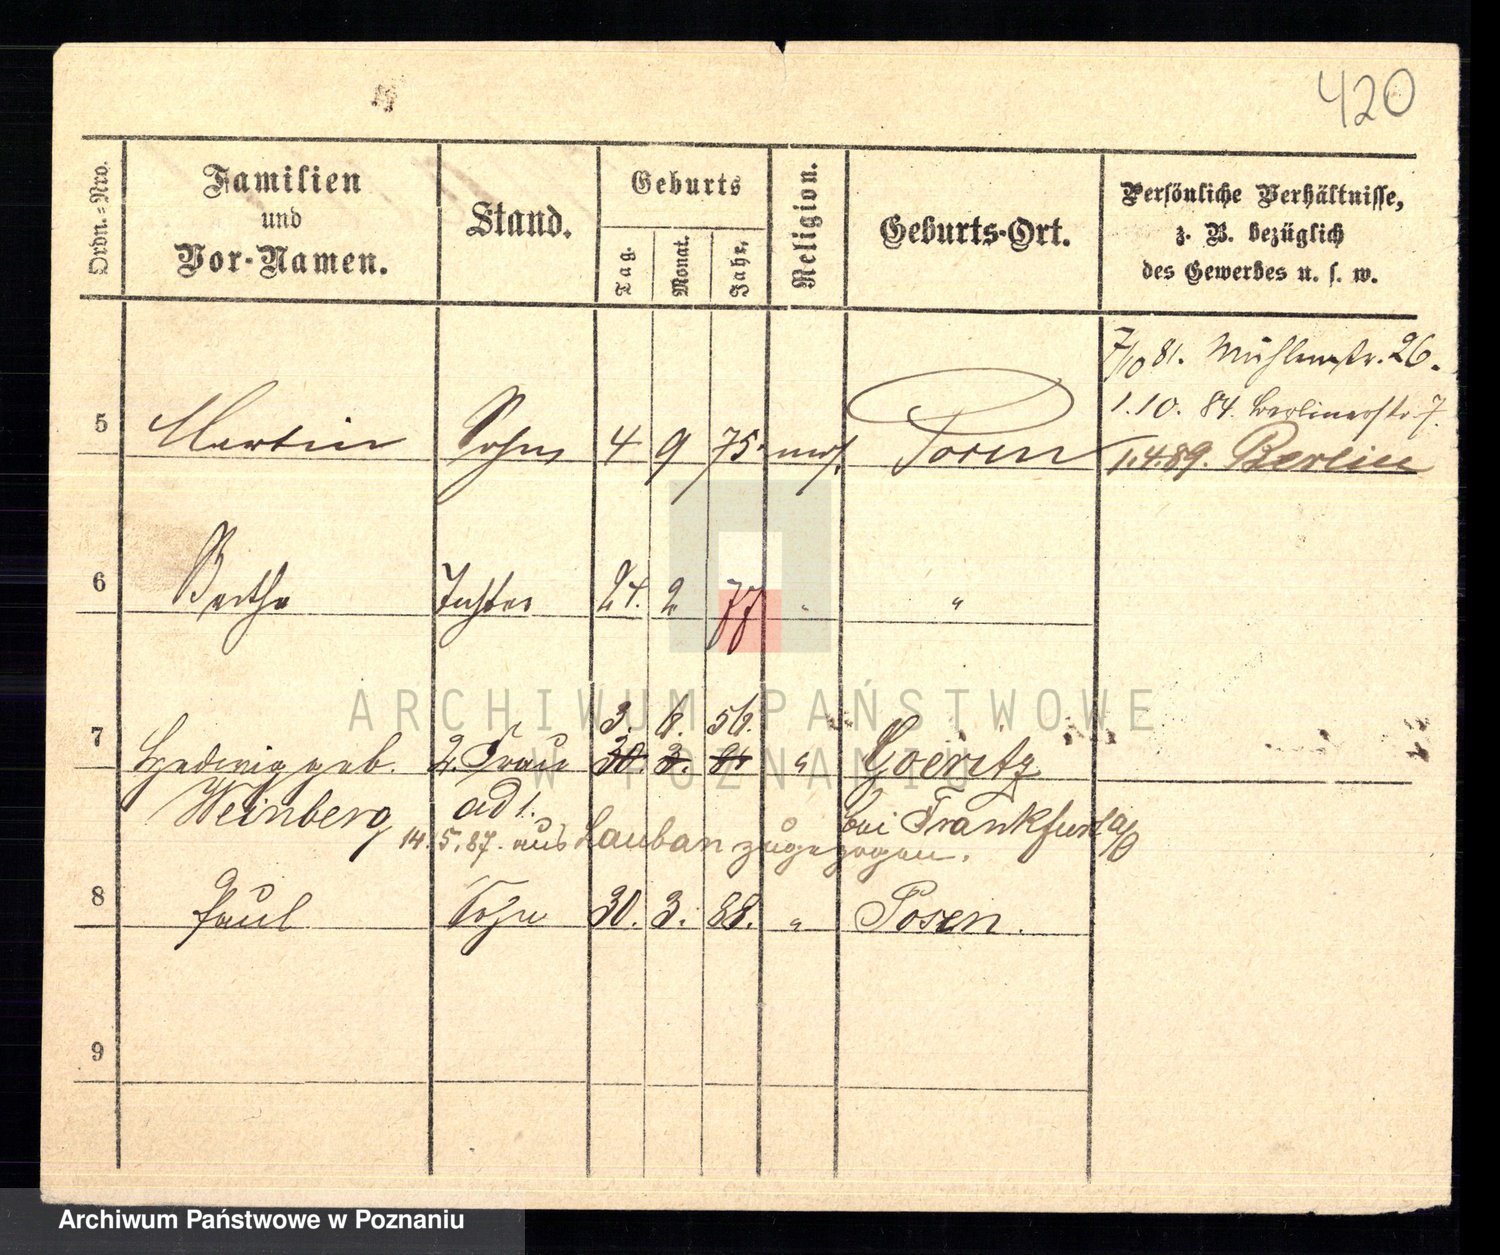 420
Ordn.-Nro.
Familien
und
Vor-Namen.
Stand.
Geburts
Tag.
Monat.
Jahr.
Religion.
Geburts-Ort.
Persönliche Verhältnisse,
z. B. bezüglich
des Gewerbes u. s. w.
7/10 81. Mühlenstr. 26.
1.10. 84. Berlinerstr. 7.
5 Martin Sohn 4 9 75. mos. Posen 1.4.89. Berlin
6 Bertha Tochter 24. 2 77 " "
ARCHIWUM PAŃSTWOWE
W POZNANIU
3. 6. 56.
7 Hedwig geb. 2. Frau 30. 3. " Goeritz
Weinberg ad 1. bei Frankfurt a/O
14.5.87. aus Lauban zugezogen.
8 Paul Sohn 30. 3. 88. " Posen.
9
Archiwum Państwowe w Poznaniu